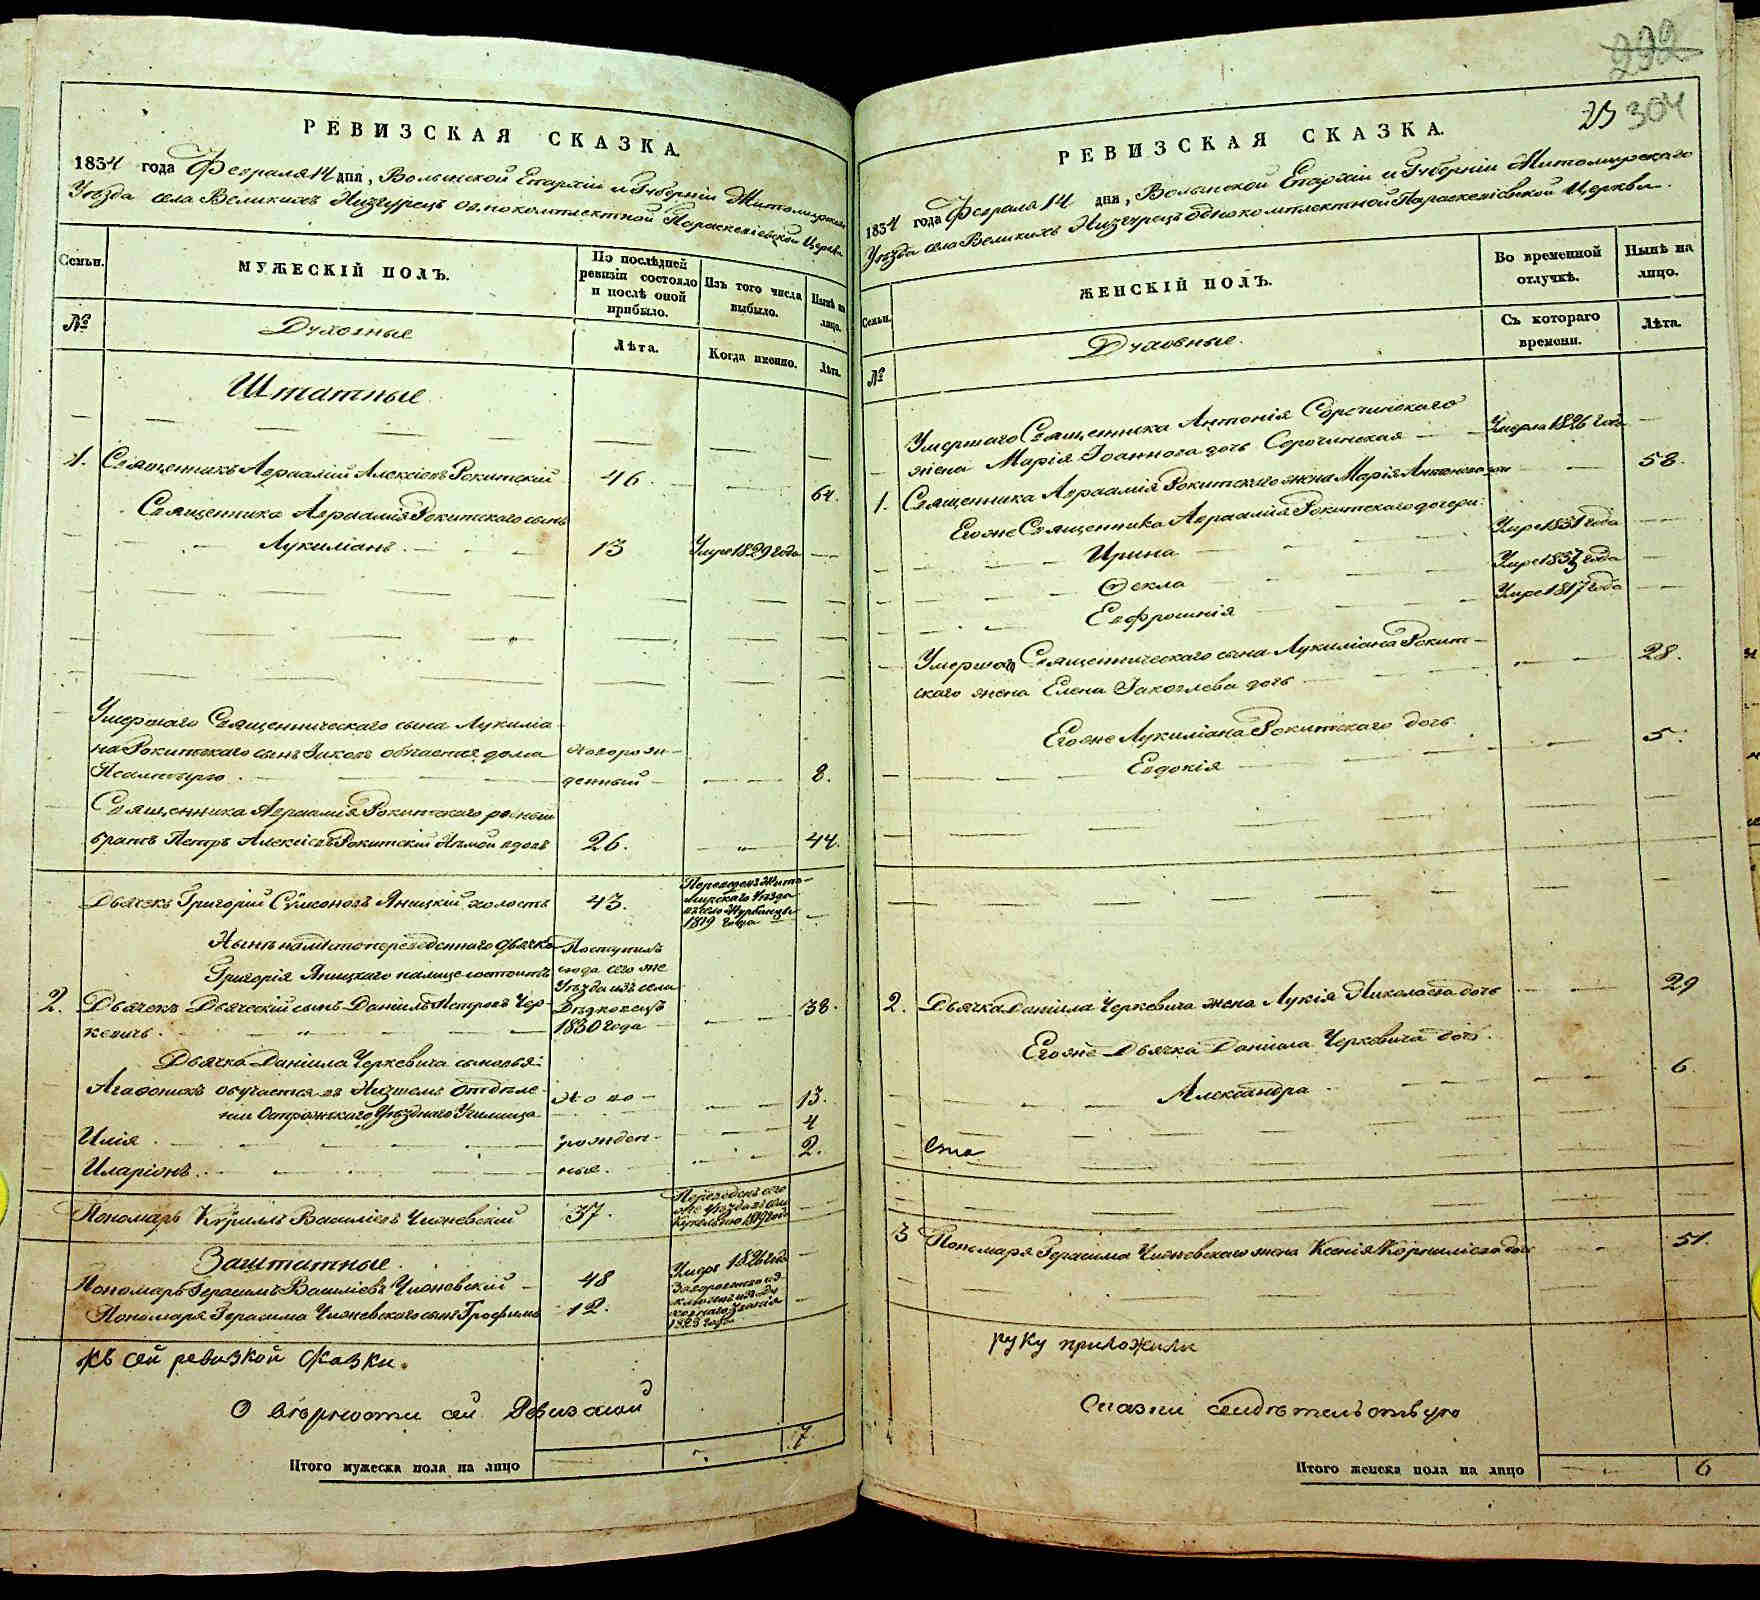 РЕВИЗСКАЯ СКАЗКА.
1834 года Февраля 14 дня, Волынской Епархіи и Губерніи Житомирскаго
Уѣзда села Великихъ Низгурецъ однокомплектной Параскевіевской Церкви
Семьи.
МУЖЕСКІЙ ПОЛЪ.
По послѣдней
ревизіи состояло
и послѣ оной
прибыло.
Изъ того числа
выбыло.
Нынѣ на
лицо.
№
Духовные
Лѣта.
Когда именно.
Лѣта.
Штатные
1. Священникъ Авраамій Алексіевъ Рокитскій 46. 64.
Священника Авраамія Рокитского сынъ
Лукиліанъ 13 Умре 1829 года
Умершаго Священническаго сына Лукиліа-
на Рокитского сынъ Іаковъ обучается дома новорож-
денный 8.
Священника Авраамія Рокитского родный
братъ Петръ Алексіевъ Рокитскій Нѣмой вдовъ 26. 44.
Дьячекъ Григорій Сѵмоновъ Яницкій холостъ 43. Переведенъ Жито-
мирскаго Уѣзда
въ село Журбинцы
1819 года
Нынѣ на мѣсто переведенного дьячка
Григорія Яницкаго на лице состоитъ
Поступилъ
сюда сего же
Уѣзда изъ села
2. Дьячекъ Дьяческій сынъ Даніилъ Петровъ Чер-
кевичъ. 1830 года 38.
Дьячка Даніила Черкевича сыновья:
Агафоникъ обучается въ Низшемъ Отдѣле-
ніи Острожскаго Уѣзднаго Училища ново- 13.
Илія рожден- 4
Иларіонъ ные. 2.
Пономарь Кѵриллъ Василіевъ Чижевскій 37. Переведенъ сего
же уѣзда въ село
1819 года
Заштатные
Пономарь Герасимъ Василіевъ Чижевскій 48 Умре 1826 года
Пономаря Герасима Чижевскаго сынъ Трофимъ 12.
духовнаго званія
1828 года
къ сей ревизкой сказки.
О вѣрности сей Ревизской
Итого мужеска пола на лицо 7
292
23 304
РЕВИЗСКАЯ СКАЗКА.
1834 года Февраля 14 дня, Волынской Епархіи и Губерніи Житомирскаго
Уѣзда села Великихъ Низгурецъ однокомплектной Параскевіевской Церкви.
Семьи.
ЖЕНСКІЙ ПОЛЪ.
Во временной
отлучкѣ.
Нынѣ на
лицо.
№
Духовные.
Съ котораго
времени.
Лѣта.
Умершаго Священника Антонія Сорочинскаго
жена Марія Іоаннова дочь Сорочинская Умерла 1826 года
1. Священника Авраамія Рокитского жена Марія Антонова дочь 58.
Его же Священника Авраамія Рокитского дочери:
Ирина Умре 1831 года
Ѳекла
Евфросинія Умре 1817 года
Умершаго Священническаго сына Лукиліана Рокит-
скаго жена Елена Іаковлева дочь 28.
Его же Лукиліана Рокитского дочь
Евдокія 5.
2. Дьячка Даніила Черкевича жена Лукія Николаева дочь 29
Его же Дьячка Даніила Черкевича дочь
Александра 6.
3 Пономаря Герасима Чижевскаго жена Ксенія Корниліева дочь 51.
руку приложили
Сказки свидѣтельствую
Итого женска пола на лицо 6